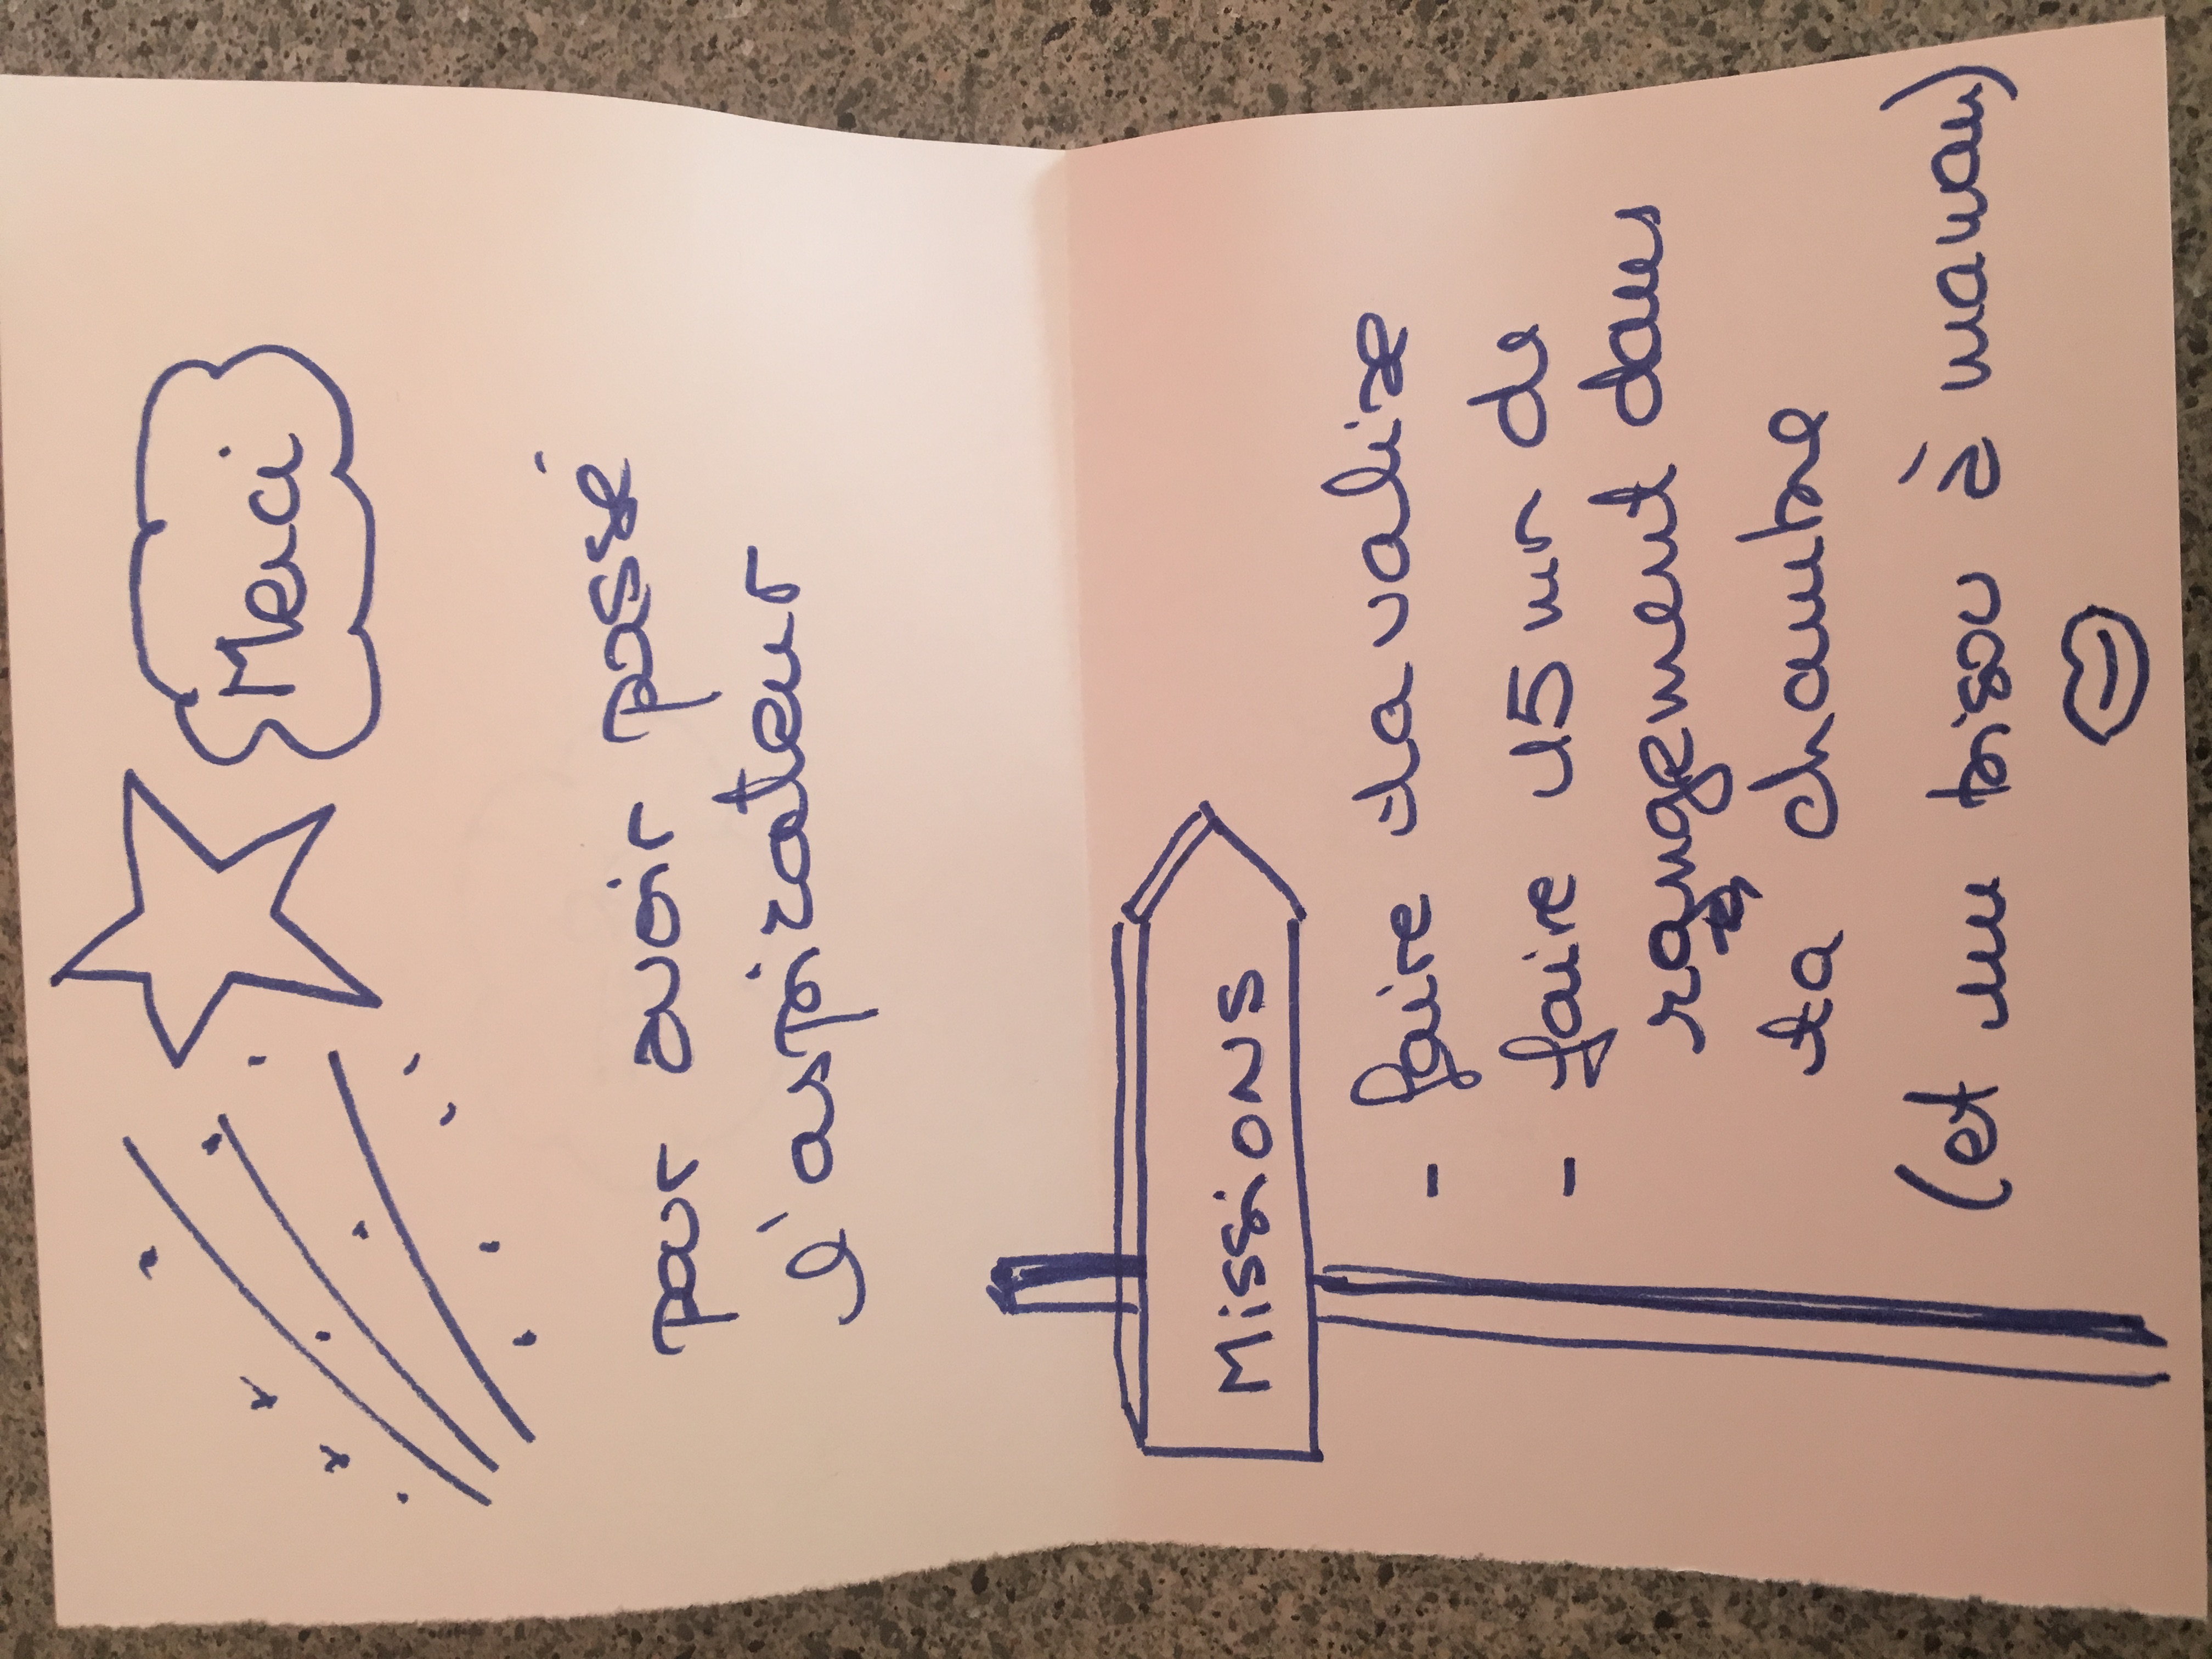 Merci
pour avoir passé
l'aspirateur
Missions
- faire ta valise
- faire 45 mn de
rangement dans
ta chambre
(et un bisou à maman)